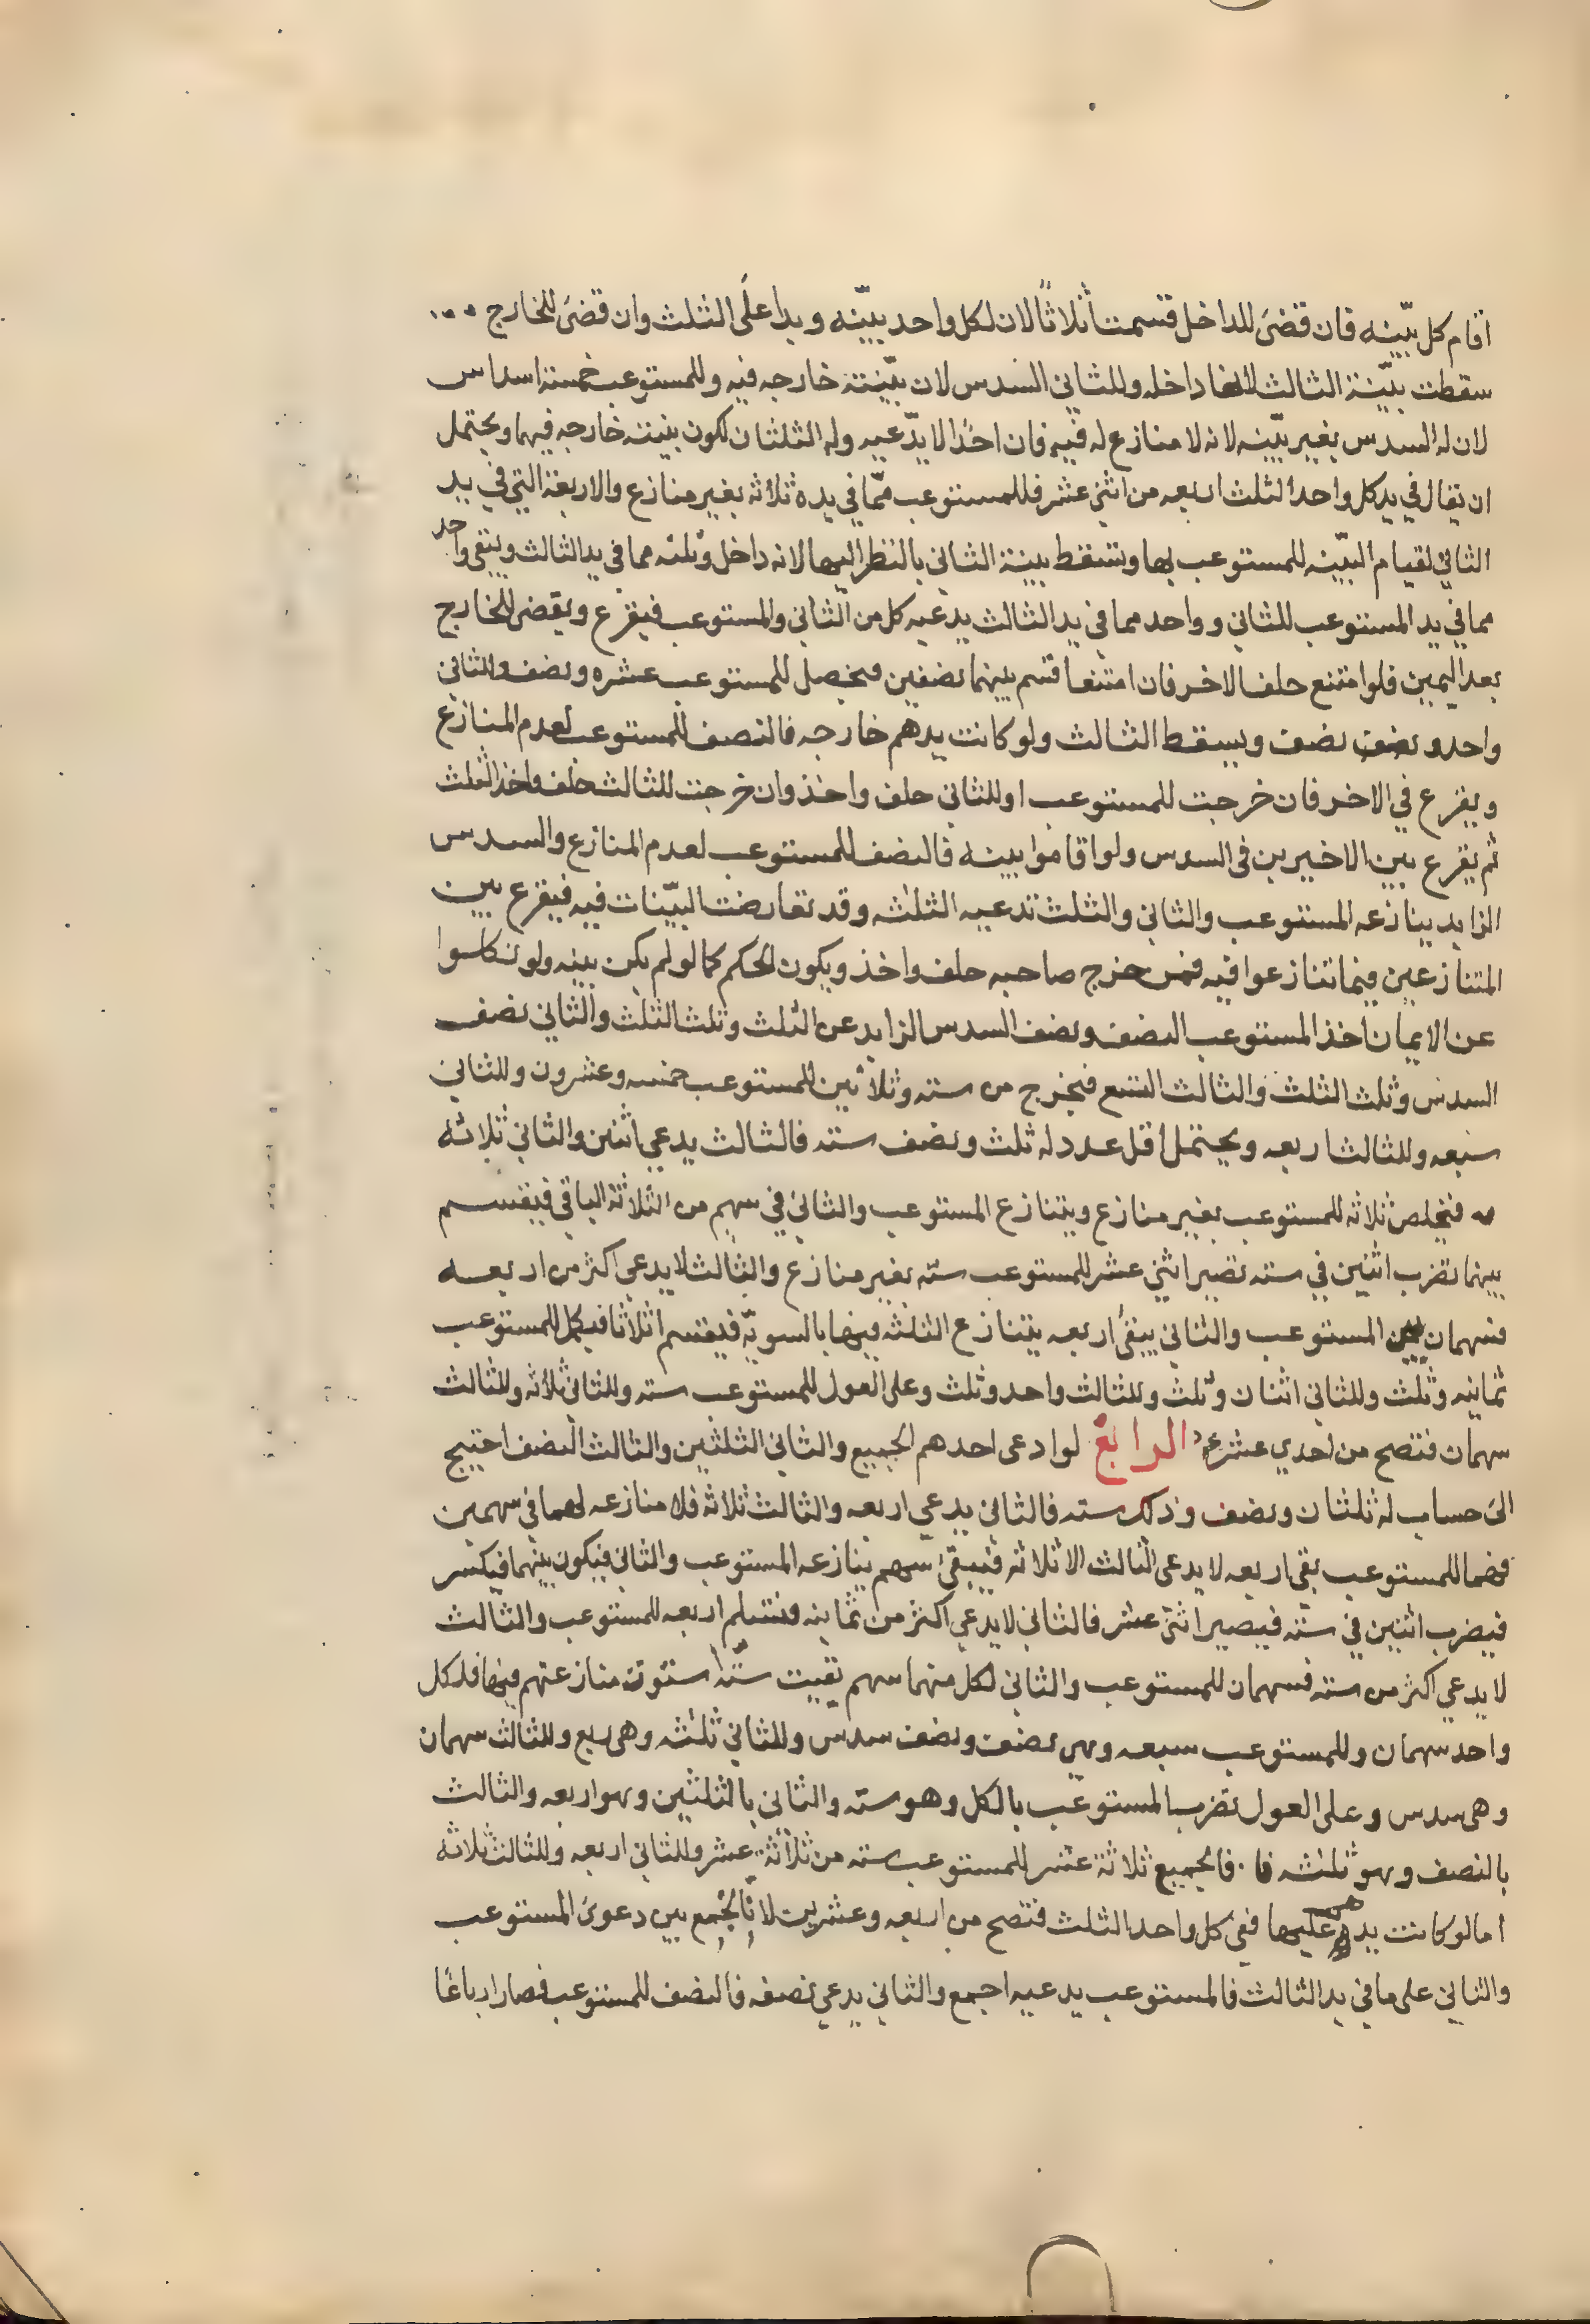 اقام كل بيّنه فان قضى للداخل قسمت اثلاثًا لان لكل واحد بيّنه ويدا على الثلث وان قضى للخارج
سقطت بيّنة الثالث لانها داخله وللثاني السدس لان بيّنته خارجه فيه وللمستوعب خمسة اسداس
لان له السدس بغير بيّنه لانه لا منازع له فيه فان احدًا لا يدّعيه وله الثلثان لكون بينته خارجه فيهما ويحتمل
ان يقال في يد كل واحد الثلث اربعه من اثنى عشر فللمستوعب ممّا في يده ثلاثه بغير منازع والاربعة التي في يد
الثاني لقيام البيّنه للمستوعب بها وتسقط بينة الثاني بالنظر اليها لانه داخل وثلثه مما في يد الثالث ويبقى واحد
مما في يد المستوعب للثاني وواحد مما في يد الثالث يدعيه كل من الثاني والمستوعب فيقرع ويقضى للخارج
بعد اليمين فلو امتنع حلف الاخر فان امتنعا قسم بينهما نصفين فيحصل للمستوعب عشره ونصف وللثاني
واحد ونصف ويسقط الثالث ولو كانت يدهم خارجه فالنصف للمستوعب لعدم المنازع
ويقرع في الاخر فان خرجت للمستوعب او للثاني حلف واخذ وان خرجت للثالث حلف واخذ الثلث
ثم يقرع بين الاخيرين في السدس ولو اقاموا بينه فالنصف للمستوعب لعدم المنازع والسدس
الزايد ينازعه المستوعب والثاني والثلث تدعيه الثلثه وقد تعارضت البيّنات فيه فيقرع بين
المتنازعين فيما تنازعوا فيه فمن خرج صاحبه حلف واخذ ويكون الحكم كما لو لم يكن بينه ولو نكلوا
عن الايمان اخذ المستوعب النصف ونصف السدس الزايد عن الثلث وثلث الثلث والثاني نصف
السدس وثلث الثلث والثالث التسع فيخرج من سته وثلاثين للمستوعب خمسه وعشرون وللثاني
سبعه وللثالث اربعه ويحتمل اقل عدد له ثلث ونصف سته فالثالث يدعي اثنين والثاني ثلاثه
فيخلص ثلاثه للمستوعب بغير منازع ويتنازع المستوعب والثاني في سهم من الثلاثة الباقي فيقسم
بينهما نضرب اثنين في سته تصير اثنى عشر للمستوعب ستّه بغير منازع والثالث لا يدعي اكثر من اربعه
فسهمان بين المستوعب والثاني يبقى اربعه يتنازع الثلثه فيها بالسويّه فيقسم اثلاثا فيكمل للمستوعب
ثمانيه وثلث وللثاني اثنان وثلث وللثالث واحد وثلث وعلى العول للمستوعب سته وللثاني ثلاثه وللثالث
سهمان فتصح من احدي عشر الرابع لو ادعى احدهم الجميع والثاني الثلثين والثالث النصف احتيج
الى حساب له ثلثان ونصف وذلك سته فالثاني يدعي اربعه والثالث ثلاثه فلا منازعه لهما في سهمين
فهما للمستوعب بقي اربعه لا يدعى الثالث الا ثلاثه فيبقى سهم ينازعه المستوعب والثاني فيكون بينهما فيكسر
فيضرب اثنين في ستّه فيصير اثنى عشر فالثاني لا يدعي اكثر من ثمانيه فتسلم اربعه للمستوعب والثالث
لا يدعي اكثر من سته فسهمان للمستوعب والثاني لكل منهما سهم بقيت ستّه استوت منازعتهم فيها فلكل
واحد سهمان وللمستوعب سبعه وهي نصف ونصف سدس وللثاني ثلثه وهى ربع وللثالث سهمان
وهى سدس وعلى العول نضرب المستوعب بالكل وهو سته والثاني بالثلثين وهو اربعه والثالث
بالنصف وهو ثلثه فا فالجميع ثلاثة عشر للمستوعب سته من ثلاثة عشر وللثاني اربعه وللثالث ثلاثه
اما لو كانت يدهم عليها ففي كل واحد الثلث فتصح من اربعه وعشرين لانّا نجمع بين دعوى المستوعب
والثاني على ما في يد الثالث فالمستوعب يدعيه اجمع والثاني يدعي نصفه فالنصف للمستوعب فصار ارباعًا